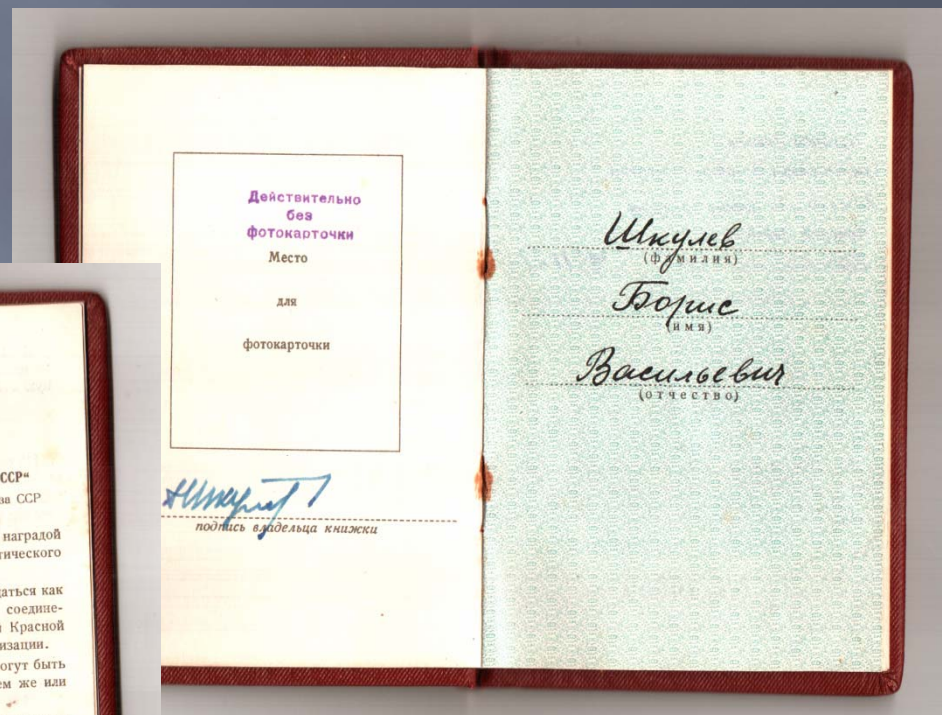 Действительно
без
фотокарточки
Место
для
фотокарточки
подпись владельца книжки
Шкулев
(фамилия)
Борис
(имя)
Васильевич
(отчество)
ССР“
за ССР
наградой
тического
даться как
соедине-
Красной
изации.
огут быть
ем же или